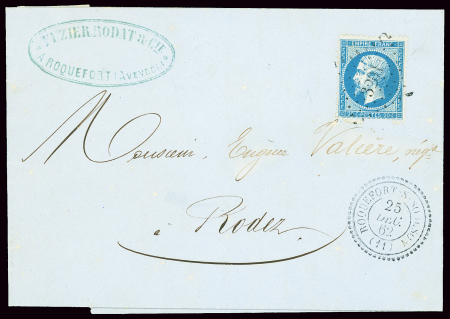 RODAT & CIE
A ROQUEFORT (AVEYRON)
EMPIRE FRANC
20 C POSTES 20 C
Monsieur, Eugène Valière, négt
à Rodez
ROQUEFORT-S-
25
DEC.
62
(11)